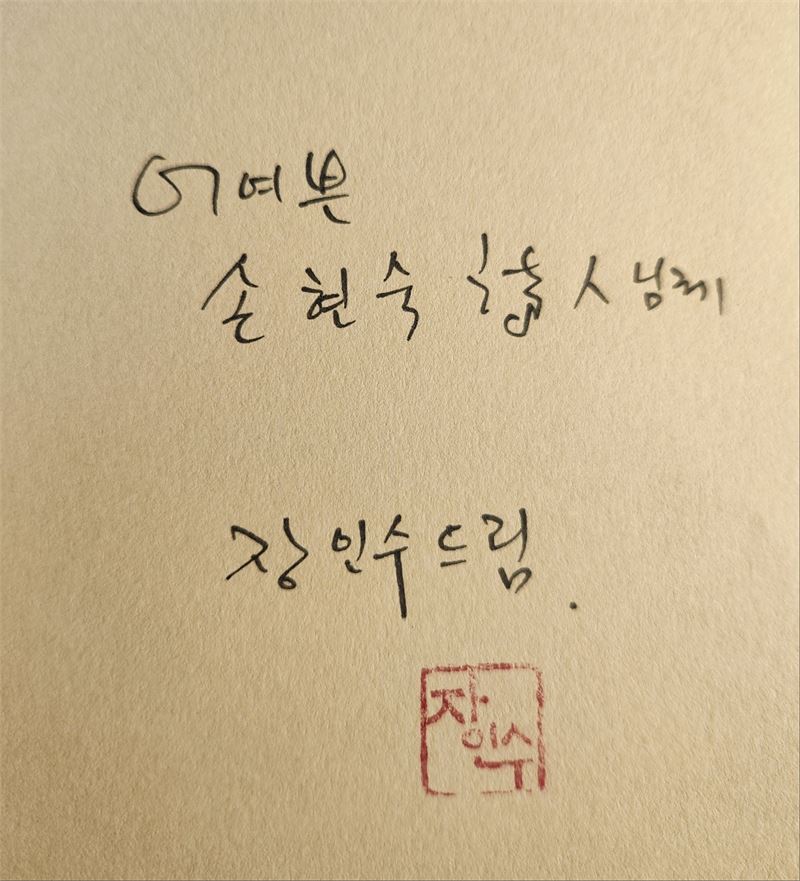 어여쁜
손현숙 시인님께
장인수 드림.
장인수